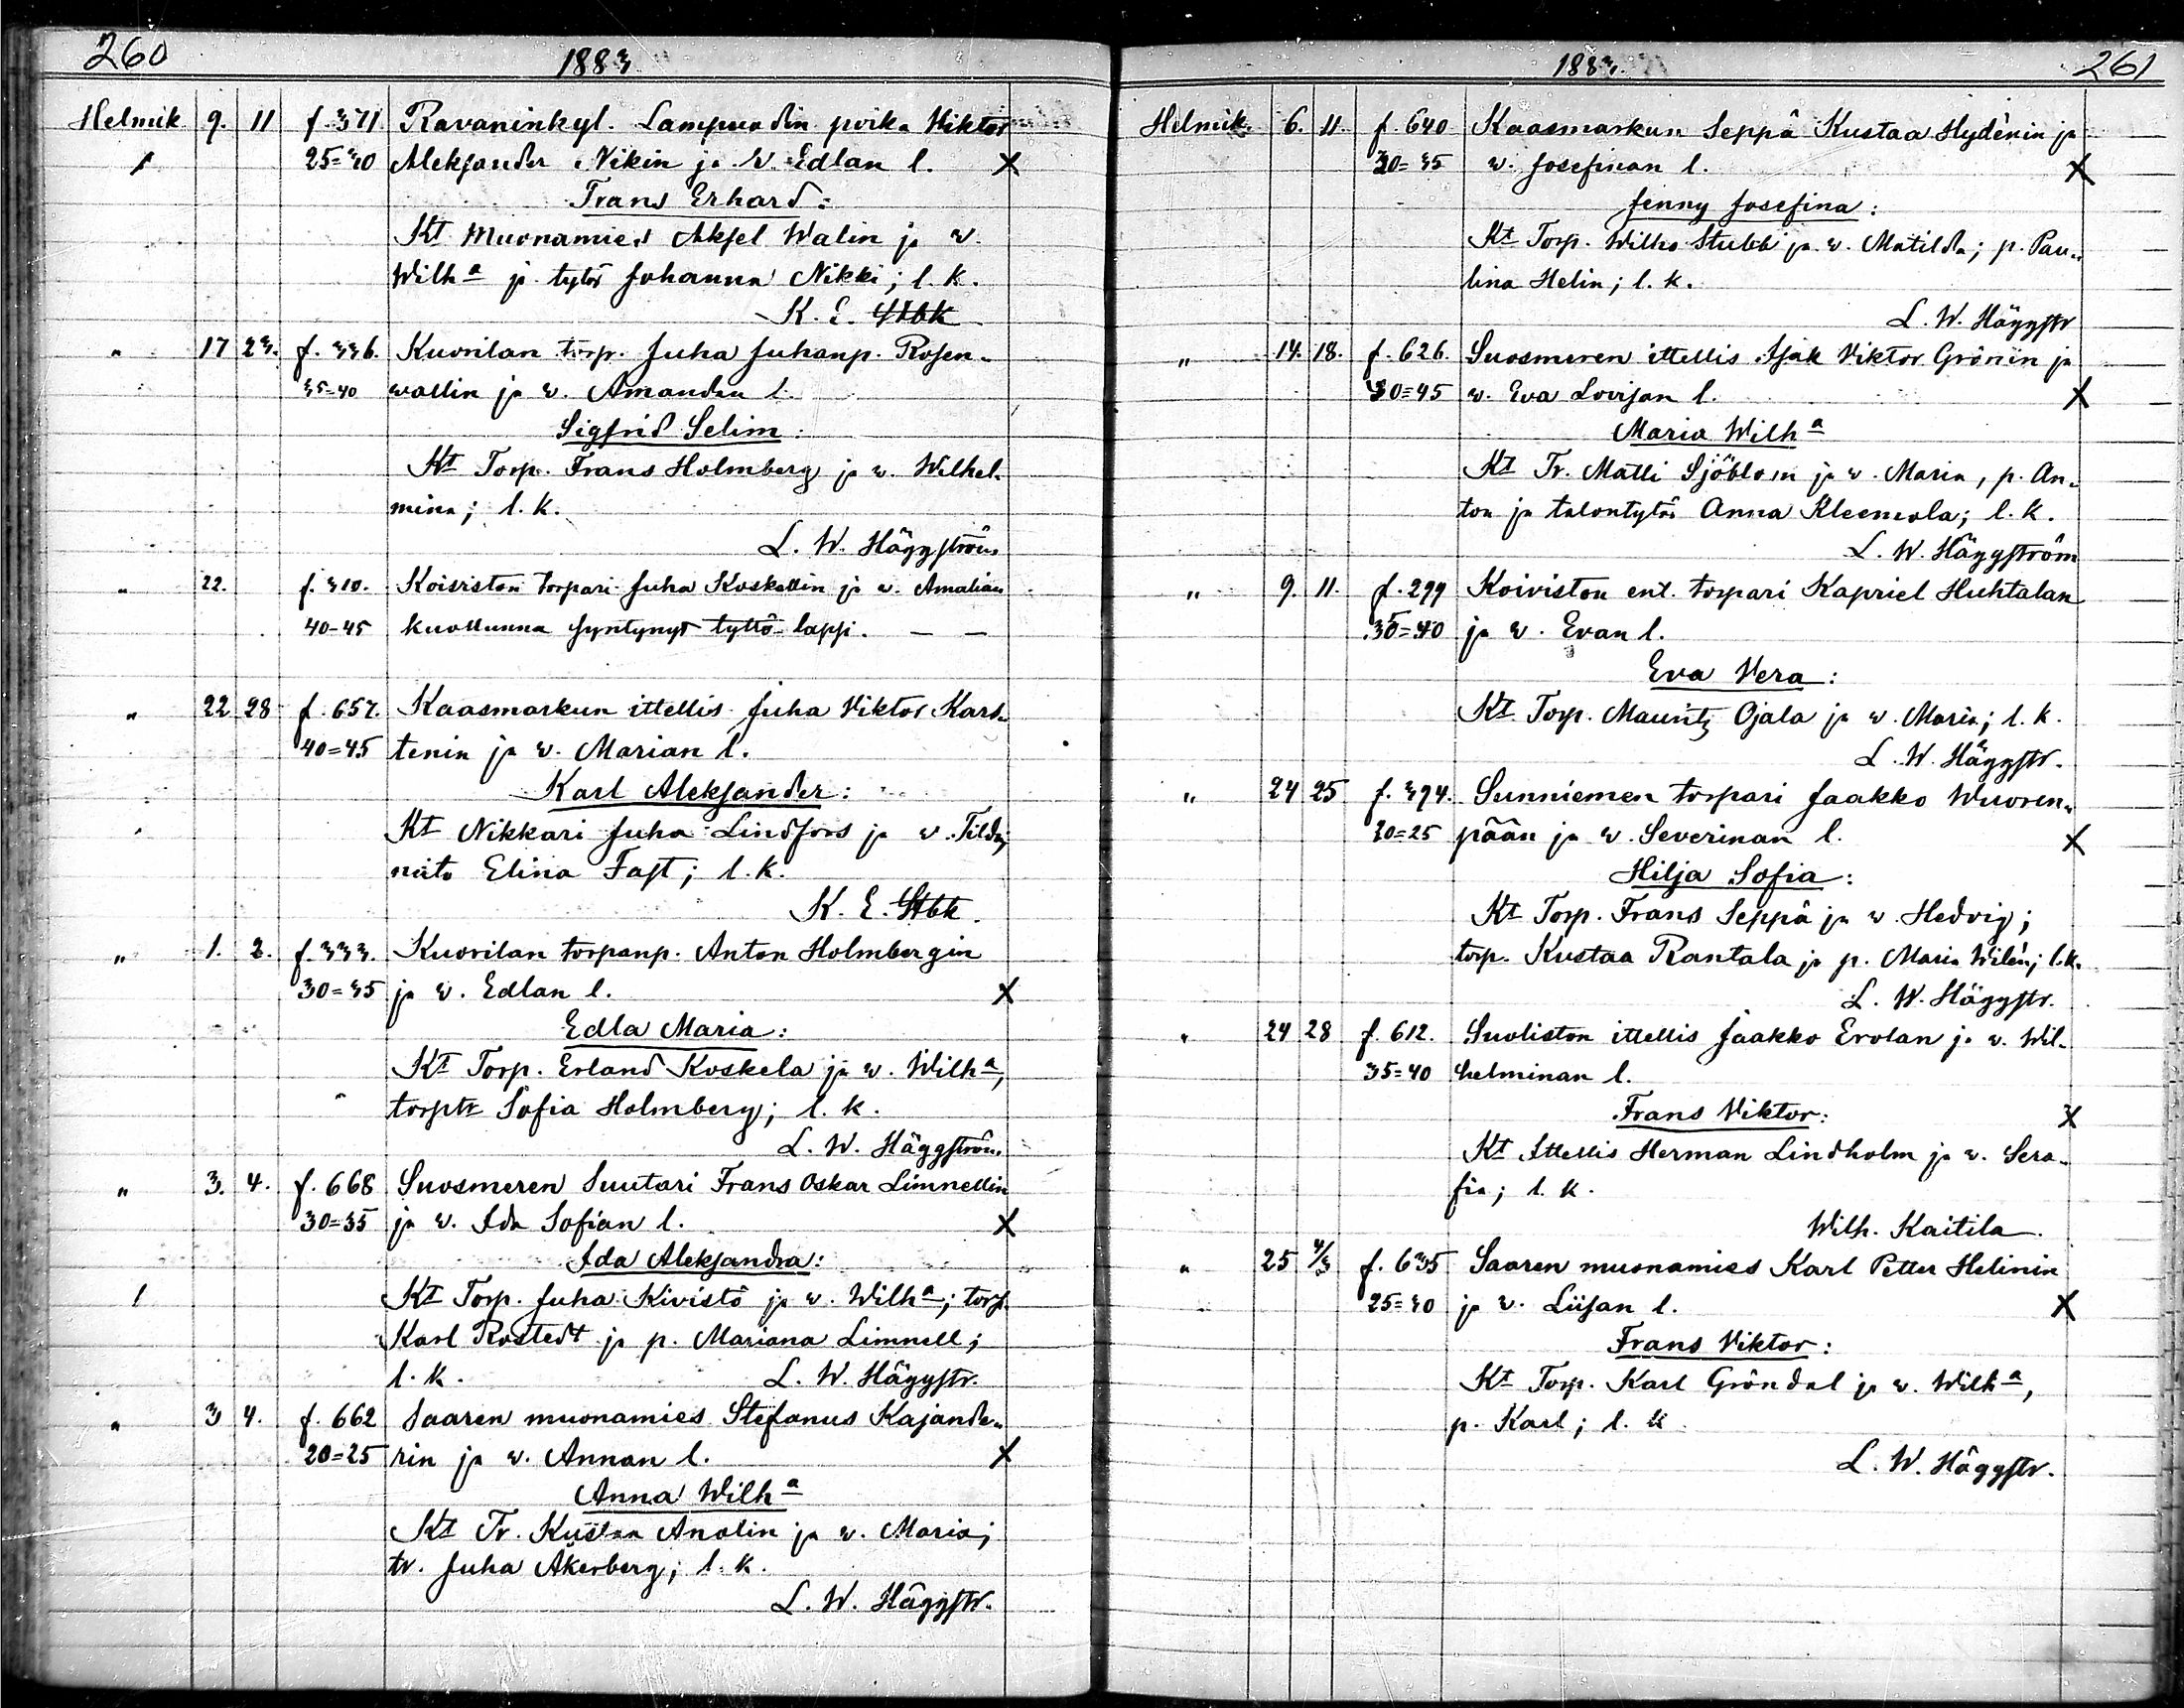 260 1883
Helmik 9. 11 f. 371 Ravaninkyl. Lampuodin poika Viktor
25=30 Aleksander Nikin ja v. Edlan l. X
Frans Erhard:
Kt Muonamies Aksel Walin ja v.
Wilha ja tytös Johanna Nikki; l. k.
K. E.
" 17 23. f. 336. Kuorilan torp. Juha Juhanp. Rosen-
35=40 wallin ja v. Amandan l.
Sigfrid Selim:
Kt Torp. Frans Holmberg ja v. Wilhel-
mina; l. k.
L. W. Häggström
" 22. f. 310. Koiviston torpari Juha Koskellin ja v. Amalian
40-45 kuollunna syntynyt tyttö-lapsi. — —
" 22 28 f. 657. Kaasmarkun ittellis Juha Viktor Kars-
40=45 tenin ja v. Marian l.
Karl Aleksander:
Kt Nikkari Juha Lindfors ja v. Tilda;
neito Elina Fast; l. k.
K. E.
" 1. 2. f. 333. Kuorilan torpanp. Anton Holmbergin
30=35 ja v. Edlan l. X
Edla Maria:
Kt Torp. Erland Koskela ja v. Wilha,
torptr Sofia Holmberg; l. k.
L. W. Häggström
" 3. 4. f. 668 Suosmeren Suutari Frans Oskar Limnellin
30=35 ja v. Ida Sofian l. X
Ida Aleksandra:
Kt Torp. Juha Kivistö ja v. Wilha; torp.
Karl Rostedt ja p. Mariana Limnell;
l. k. L. W. Häggstr.
" 3 4. f. 662 Saaren muonamies Stefanus Kajande-
20=25 rin ja v. Annan l. X
Anna Wilha
Kt Tr. Kustaa Anolin ja v. Maria;
tr. Juha Åkerberg; l. k.
L. W. Häggstr.
1883. 261
Helmik. 6. 11. f. 640 Kaasmarkun Seppä Kustaa Hydénin ja
30=35 v. Josefinan l. X
Jenny Josefina:
Kt Torp. Wilho Stubb ja v. Matilda; p. Pau-
lina Helin; l. k.
L. W. Häggstr
" 14. 18. f. 626. Suosmeren ittellis Isak Viktor Grönin ja
40=45 v. Eva Lovisan l. X
Maria Wilha
Kt Tr. Matti Sjöblom ja v. Maria, p. An-
ton ja talontytös Anna Kleemola; l. k.
L. W. Häggström
" 9. 11. f. 299 Koiviston ent. torpari Kapriel Huhtalan
35=40 ja v. Evan l.
Eva Vera:
Kt. Torp. Mauritz Ojala ja v. Maria; l. k.
L. W. Häggstr.
" 24 25 f. 394. Sunniemen torpari Jaakko Wuoren-
20=25 pään ja v. Severinan l. X
Hilja Sofia:
Kt Torp. Frans Seppä ja v. Hedvig;
torp. Kustaa Rantala ja p. Maria Wilén; l. k.
L. W. Häggstr.
" 24 28 f. 612. Suoliston ittellis Jaakko Erolan ja v. Wil-
35=40 helminan l.
Frans Viktor: X
Kt Ittellis Herman Lindholm ja v. Sera-
fia; l. k.
Wilh. Kaitila
" 25 4/3 f. 635 Saaren muonamies Karl Petter Helinin
25=30 ja v. Liisan l. X
Frans Viktor:
Kt Torp. Karl Gröndal ja v. Wilha,
p. Karl; l. k
L. W. Häggstr.